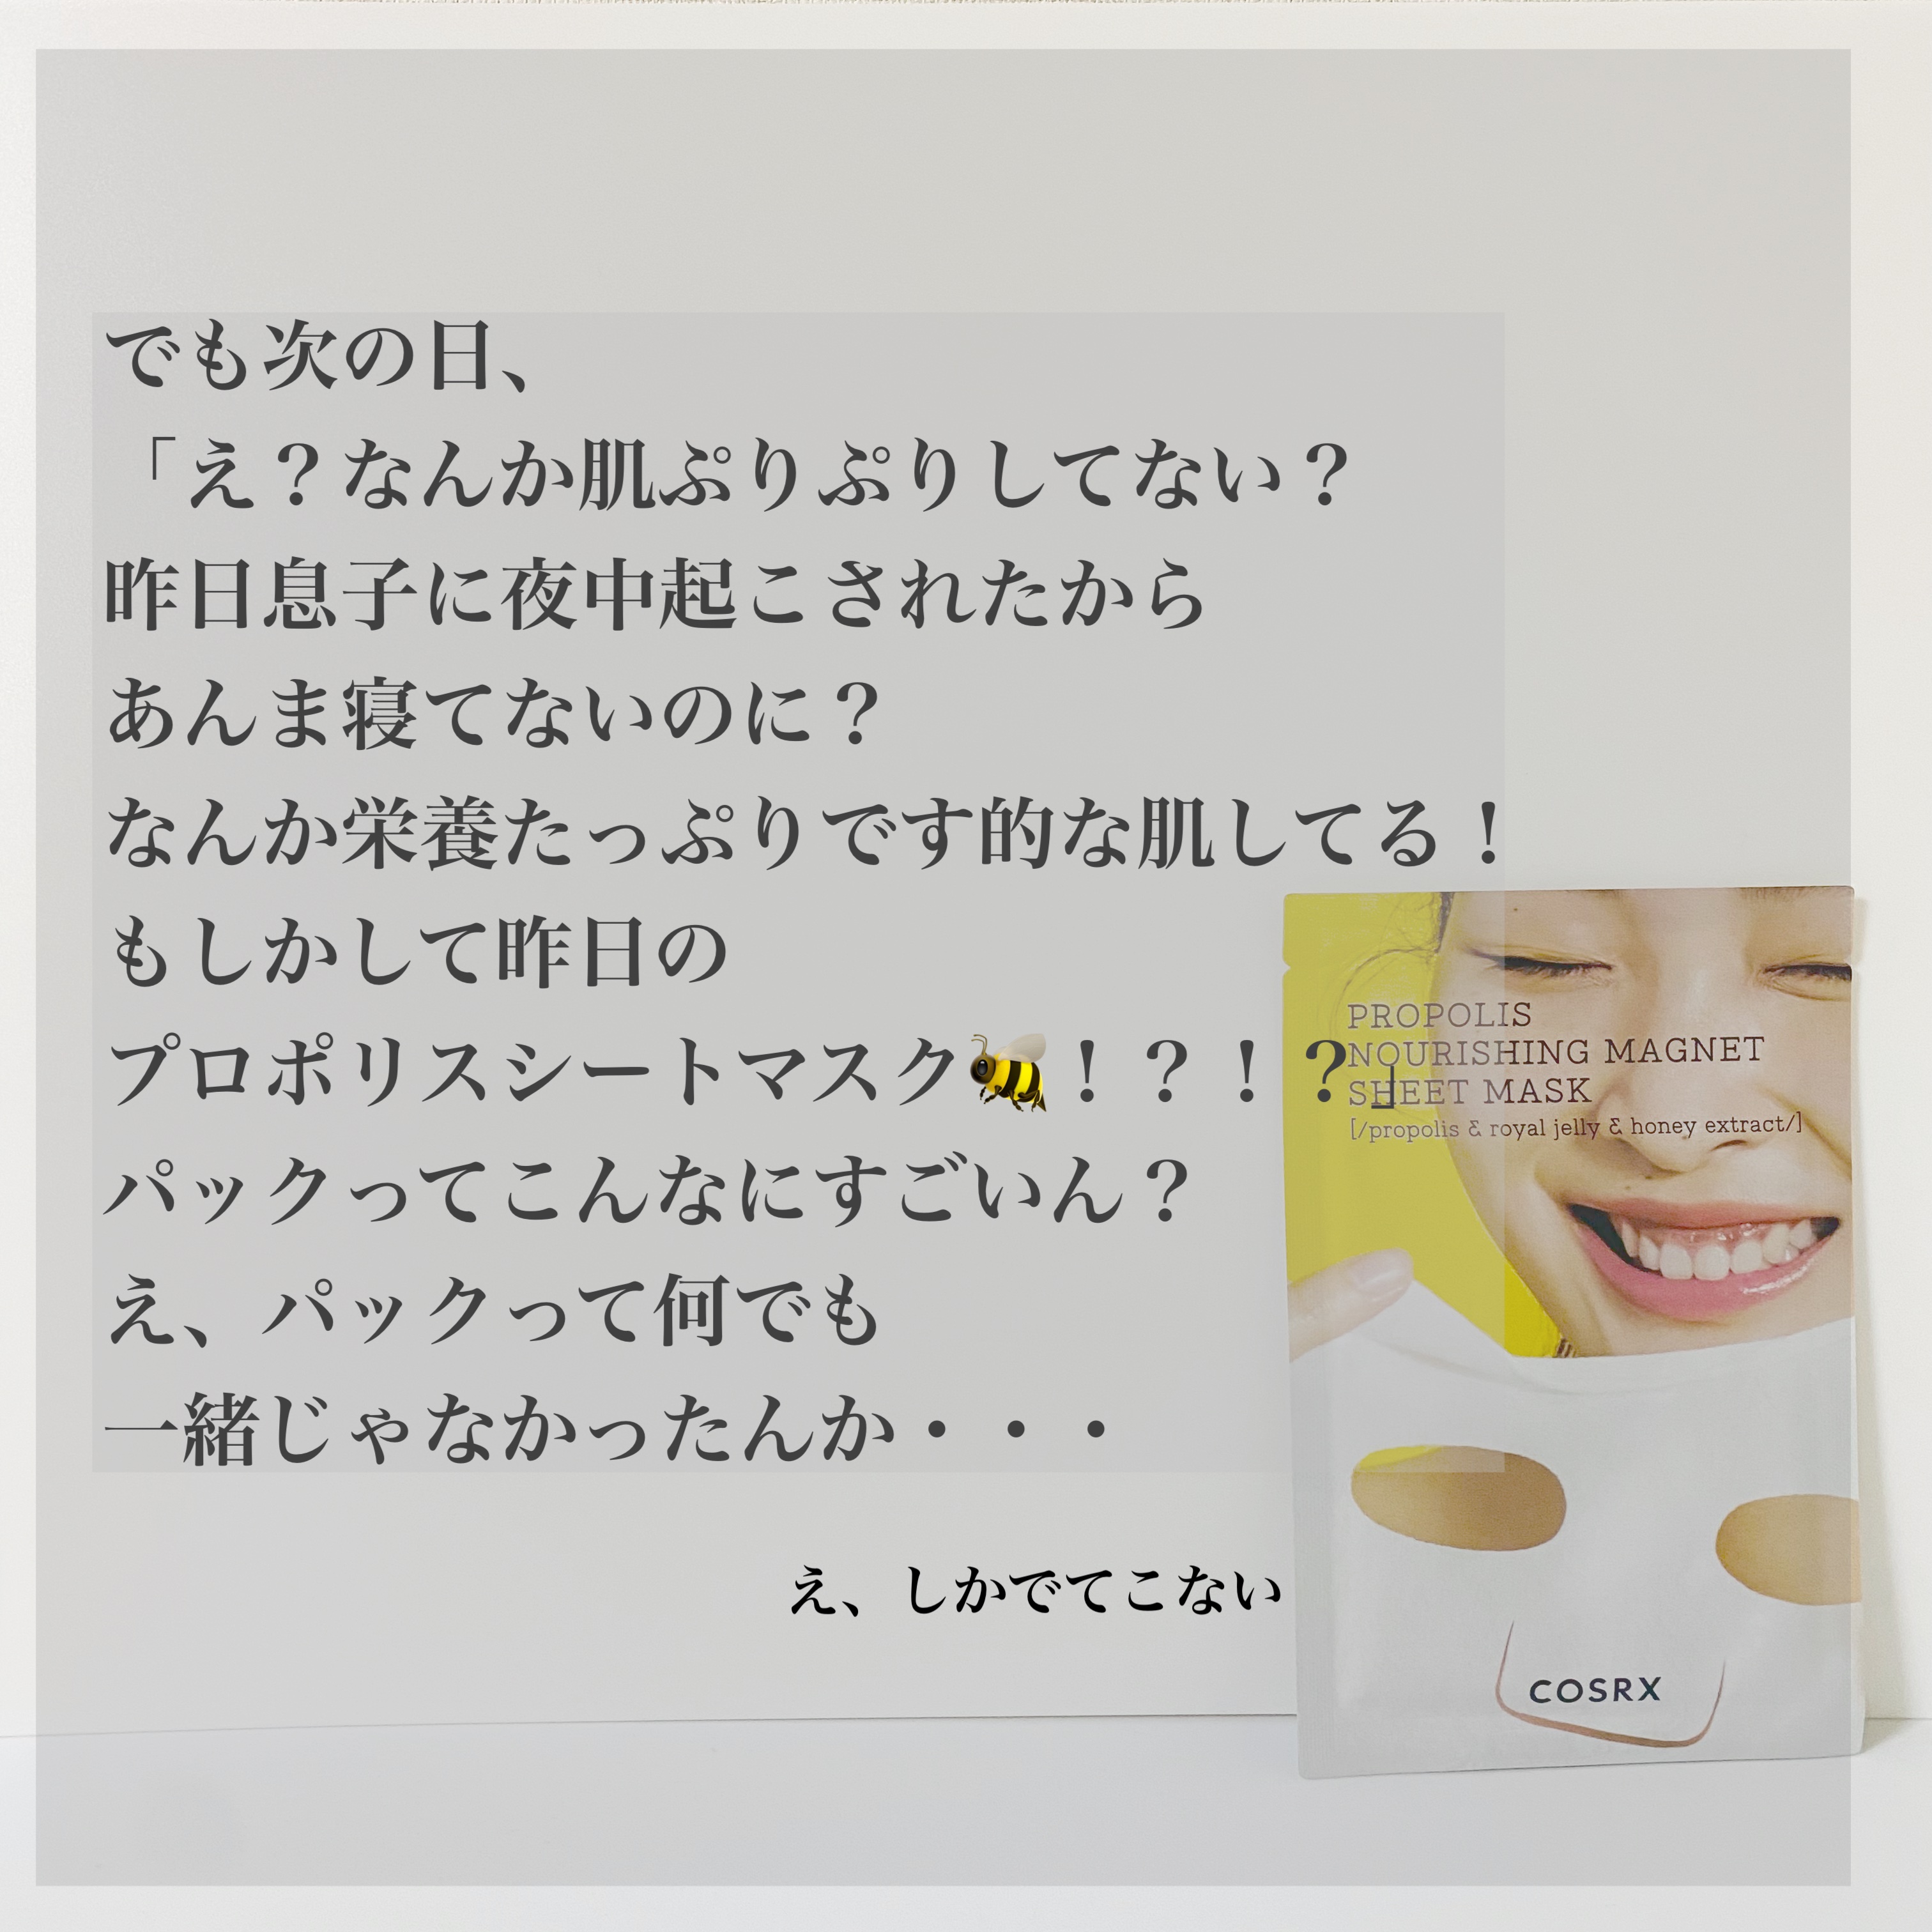 でも次の日、
「え？なんか肌ぷりぷりしてない？
昨日息子に夜中起こされたから
あんま寝てないのに？
なんか栄養たっぷりです的な肌してる！
もしかして昨日の
プロポリスシートマスク🐝！？！？」
パックってこんなにすごいん？
え、パックって何でも
一緒じゃなかったんか・・・
え、しかでてこない
PROPOLIS
NOURISHING MAGNET
SHEET MASK
[/propolis & royal jelly & honey extract/]
COSRX